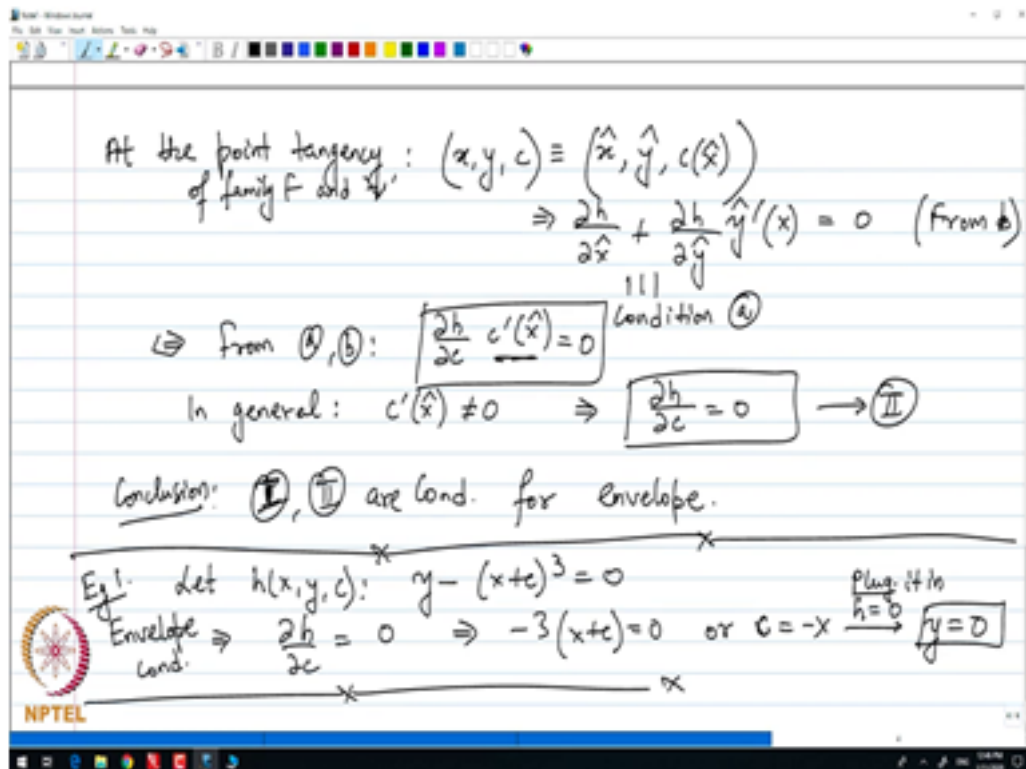 At the point tangency : (x, y, c) ≡ (x̂, ŷ, c(x̂))
of family F and ψ
⇒ ∂h/∂x̂ + ∂h/∂ŷ ŷ'(x) = 0 (From b)
||| Condition ⓐ
↳ From ⓐ, ⓑ : ∂h/∂c c'(x̂) = 0
In general : c'(x̂) ≠ 0 ⇒ ∂h/∂c = 0 → Ⅱ
Conclusion: Ⅰ, Ⅱ are Cond. for envelope.
Eg 1. Let h(x, y, c): y - (x+c)³ = 0
Envelope cond. ⇒ ∂h/∂c = 0 ⇒ -3(x+c) = 0 or c = -x → Plug it in h = 0 y = 0
NPTEL